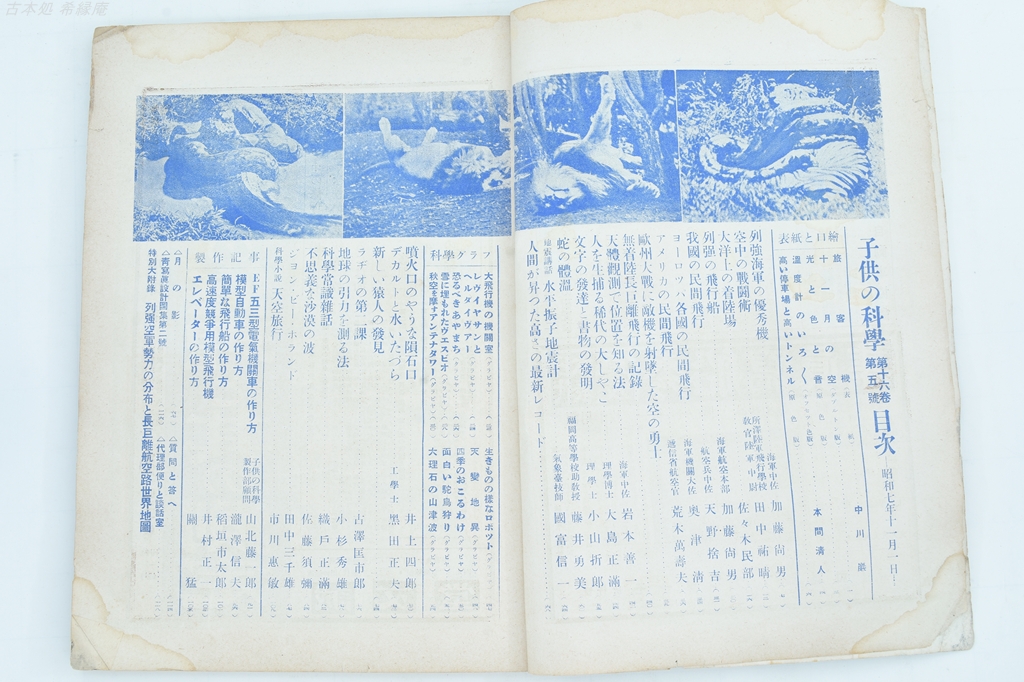 古本処 希緑庵
子供の科學 第十六卷 第五號 目次 昭和七年十一月一日
表紙 旅客機
口繪 十一月の空
光と色と音 本間清人
溫度計のいろ〱
高い停車場と高いトンネル
中川
列強海軍の優秀機 海軍中佐 加藤尙男
空中の戰鬪術 所澤陸軍飛行學校敎官陸軍中尉 田中祐晴
大洋上の着陸場 佐々木民部
列强の飛行船 海軍航空本部 加藤尙男
我國の民間飛行 航空兵中佐 天野捨吉
ヨーロッパ各國の民間飛行 海軍機關大佐 奥津淸
アメリカの民間飛行 遞信省航空官 荒木萬壽夫
歐州大戰に敵機を射墜した空の勇士
無着陸長巨離飛行の記錄 海軍中佐 岩木善一
天體觀測で位置を知る法 理學博士 大島正滿
人を生捕る稀代の大しやこ 理學士 小山折郞
文字の發達と書物の發明
蛇の體溫 福岡高等學校助敎授 藤井勇美
地震講話 水平振子地震計 氣象臺技師 國富信一
人間が昇つた高さの最新レコード
グラフ科學
大飛行機の機關室
ヘイヤサンとヘルダイヴァー
恐るべきあやまち
雪に埋もれたヴエスビオ
秋空を摩すアンテナタワー
生きもの樣なロボツト
天變地異
四季のおこるわけ
面白い駝鳥狩り
大理石の山津波
噴火口のやうな隕石口 井上四郞
デカルトと水いたづら 工學士 黑田正夫
新しい猿人の發見
ラヂオの第一課 古澤匡市郞
地球の引力を測る法 小杉秀雄
科學常識雜話 織戶正滿
不思義な沙漠の波 佐藤須彌
ジヨン・ピー・ホランド 田中三千雄
科學小說 天空旅行 市川惠敏
製作記事
EF五三型電氣機關車の作り方 子供の科學製作部顧問 山北藤一郞
模型自動車の作り方 瀧澤信夫
簡單な飛行船の作り方 稻垣市太郞
高速度競爭用模型飛行機 井村正一
エレベーターの作り方 關猛
△月の影
△質問と答へ
△靑寫眞設計圖集第二號
△代理部便りと談話室
特別大附錄 列強空軍勢力の分布と長巨離航空路世界地圖